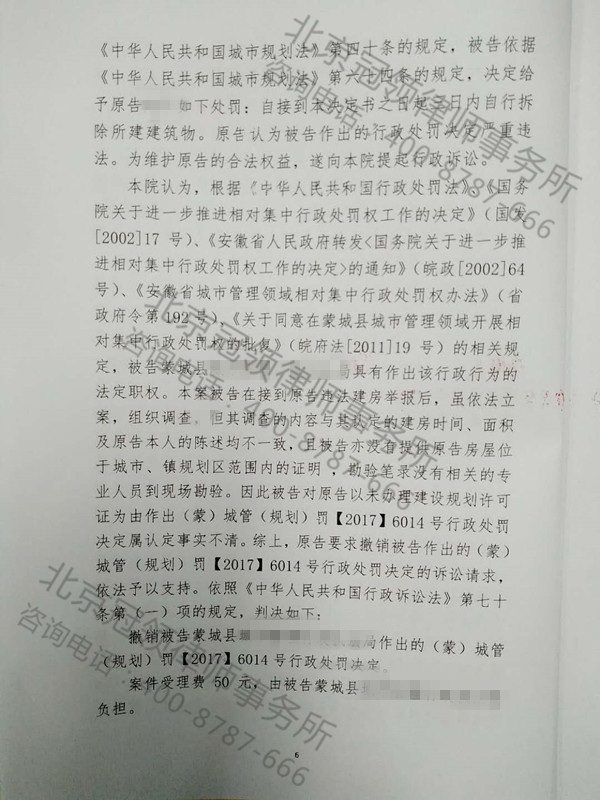 《中华人民共和国城市规划法》第四十条的规定，被告依据
《中华人民共和国城市规划法》第六十四条的规定，决定给
予原告 如下处罚：自接到本决定书之日起三日内自行拆
除所建建筑物。原告认为被告作出的行政处罚决定严重违
法。为维护原告的合法权益，遂向本院提起行政诉讼。
本院认为，根据《中华人民共和国行政处罚法》、《国务
院关于进一步推进相对集中行政处罚权工作的决定》（国发
[2002]17 号）、《安徽省人民政府转发<国务院关于进一步推
进相对集中行政处罚权工作的决定>的通知》（皖政[2002]64
号）、《安徽省城市管理领域相对集中行政处罚权办法》（省
政府令第 192 号）、《关于同意在蒙城县城市管理领域开展相
对集中行政处罚权的批复》（皖府法[2011]19 号）的相关规
定，被告蒙城县 局具有作出该行政行为的
法定职权。本案被告在接到原告违法建房举报后，虽依法立
案，组织调查，但其调查的内容与其认定的建房时间、面积
及原告本人的陈述均不一致，且被告亦没有提供原告房屋位
于城市、镇规划区范围内的证明，勘验笔录没有相关的专
业人员到现场勘验。因此被告对原告以未办理建设规划许可
证为由作出（蒙）城管（规划）罚【2017】6014 号行政处罚
决定属认定事实不清。综上，原告要求撤销被告作出的（蒙）
城管（规划）罚【2017】6014 号行政处罚决定的诉讼请求，
依法予以支持。依照《中华人民共和国行政诉讼法》第七十
条第（一）项的规定，判决如下：
撤销被告蒙城县 局作出的（蒙）城管
（规划）罚【2017】6014 号行政处罚决定。
案件受理费 50 元，由被告蒙城县
负担。
6
北京冠领律师事务所
咨询电话：400-8787-666
北京冠领律师事务所
咨询电话：400-8787-666
北京冠领律师事务所
咨询电话：400-8787-666